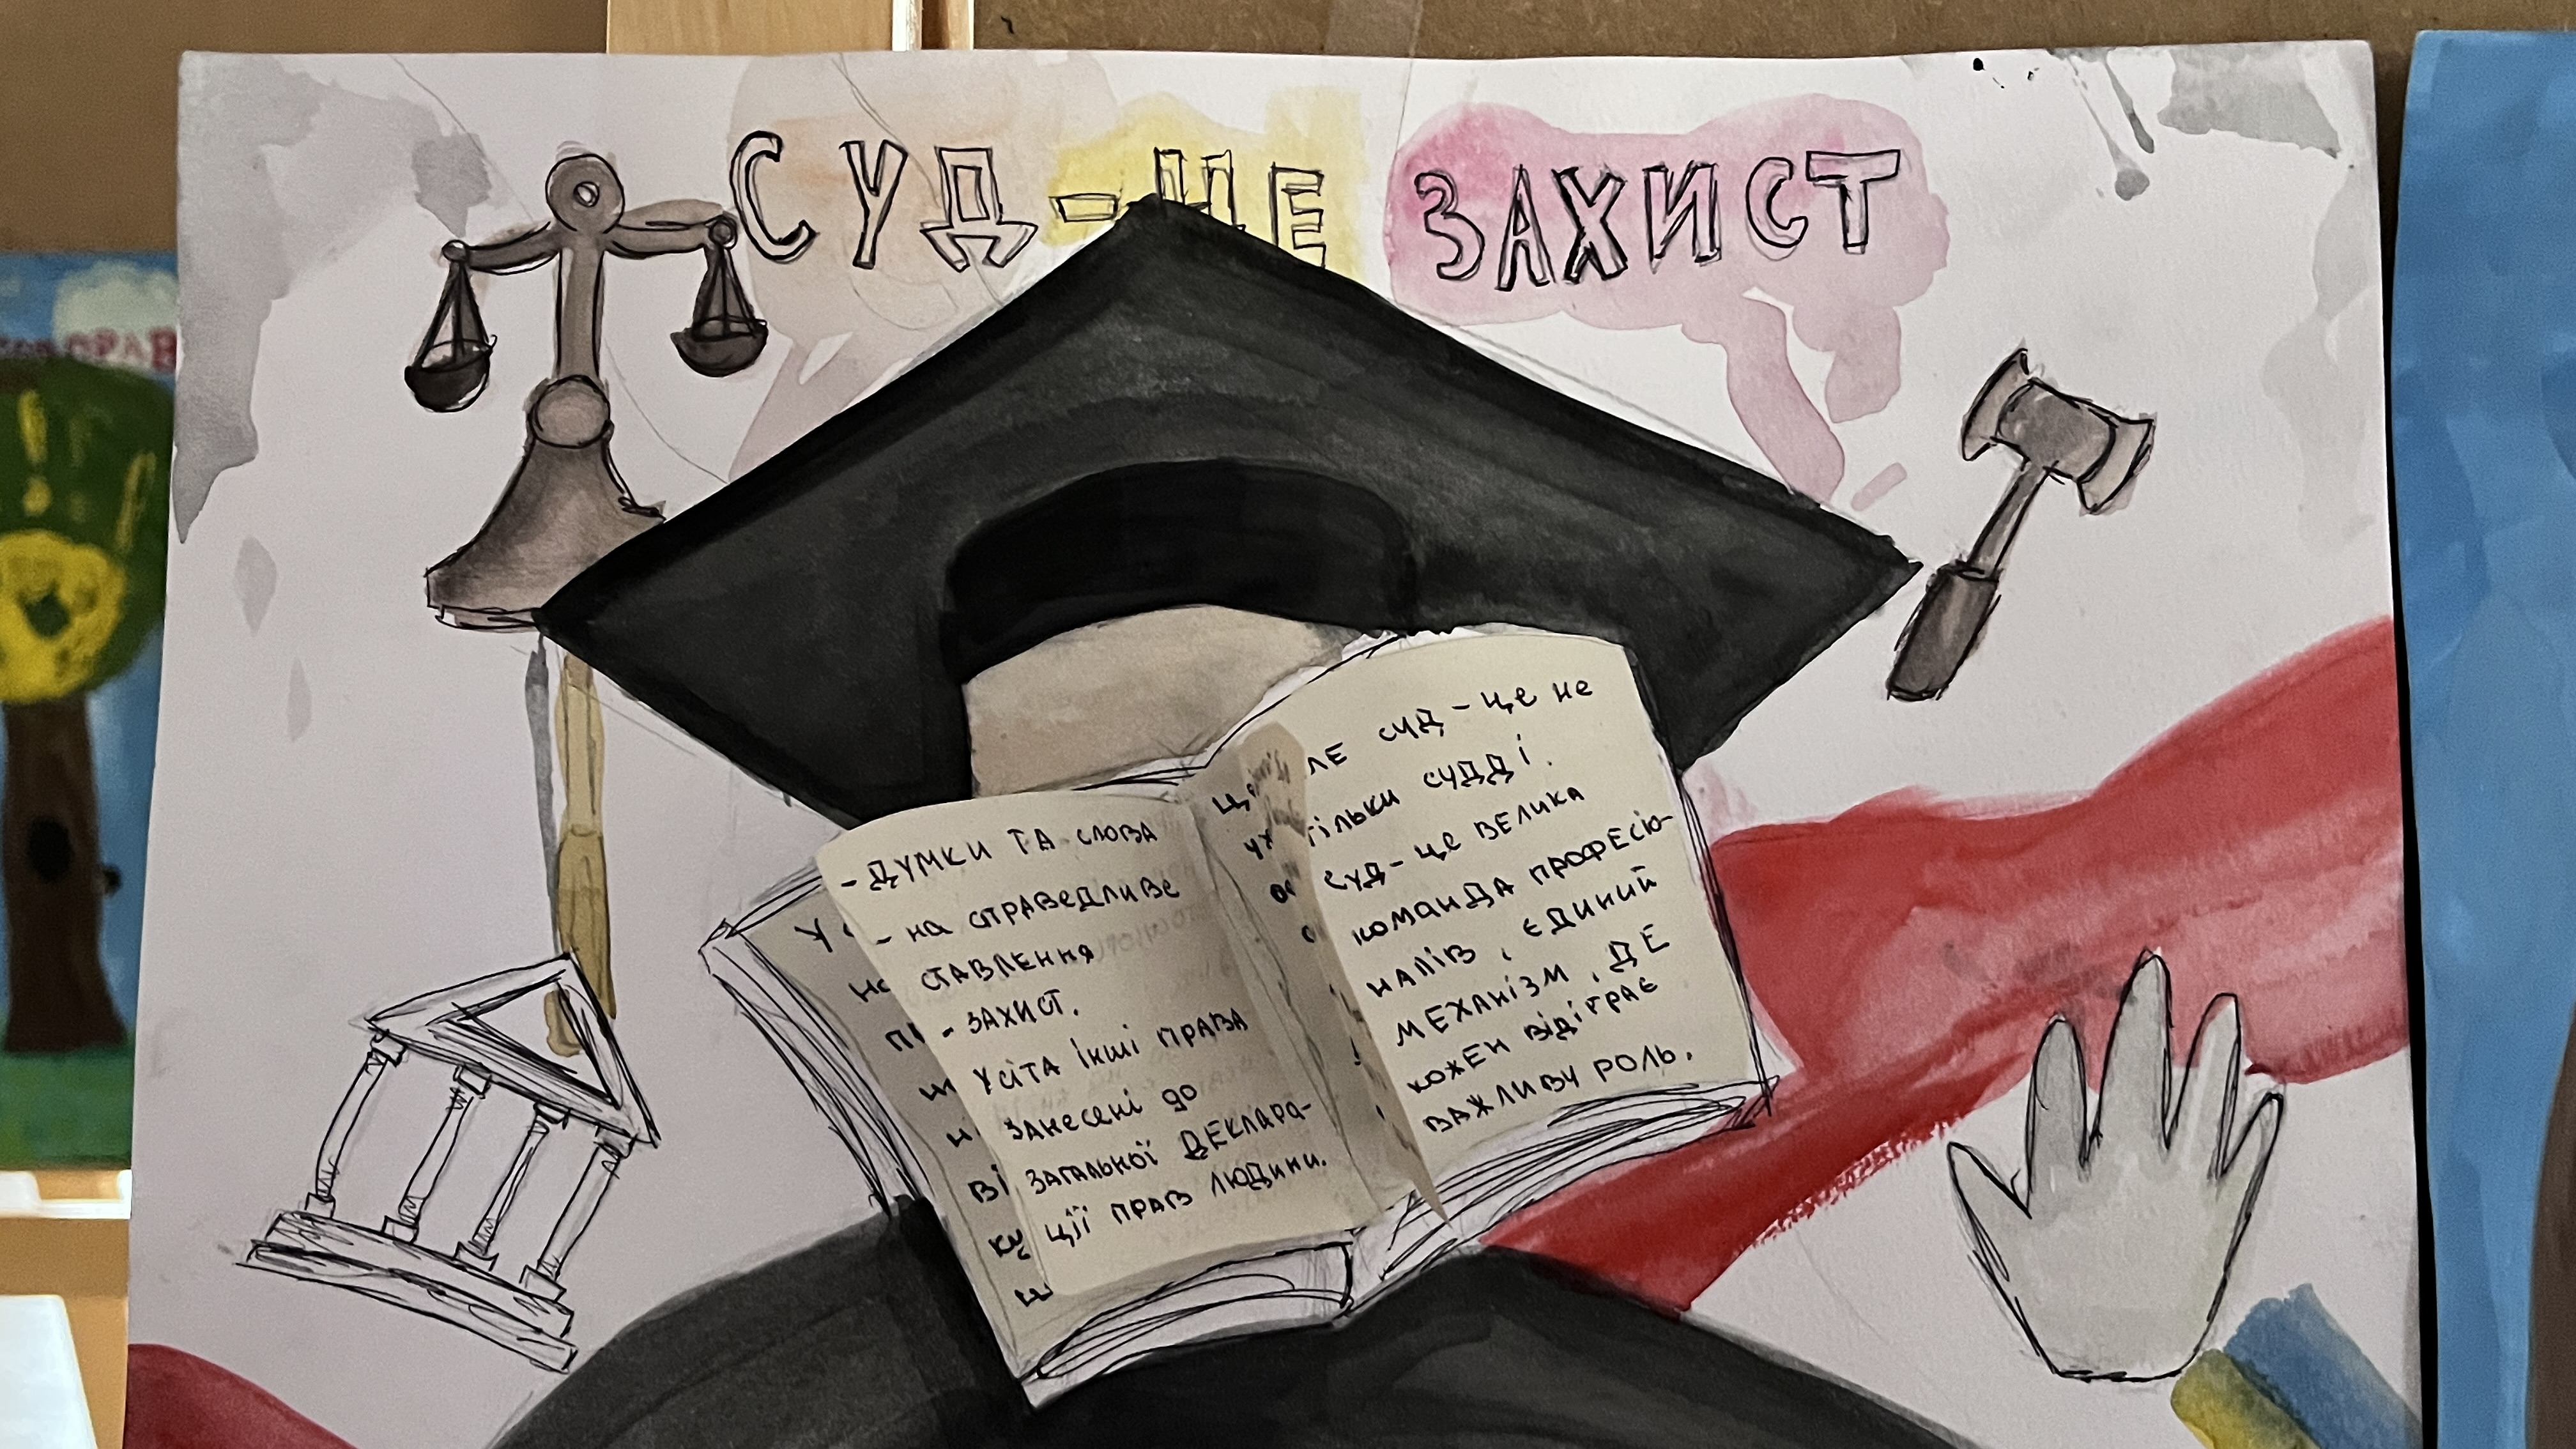 СУД-ЦЕ ЗАХИСТ
- ДУМКИ ТА СЛОВА
- на справедливе
ставлення
- захист.
Усі та інші права
занесені до
загальної деклара-
ції прав людини.
ЛЕ СУД - це не
тільки судді.
Суд - це велика
команда професіо-
налів, єдиний
механізм, де
кожен відіграє
важливу роль.